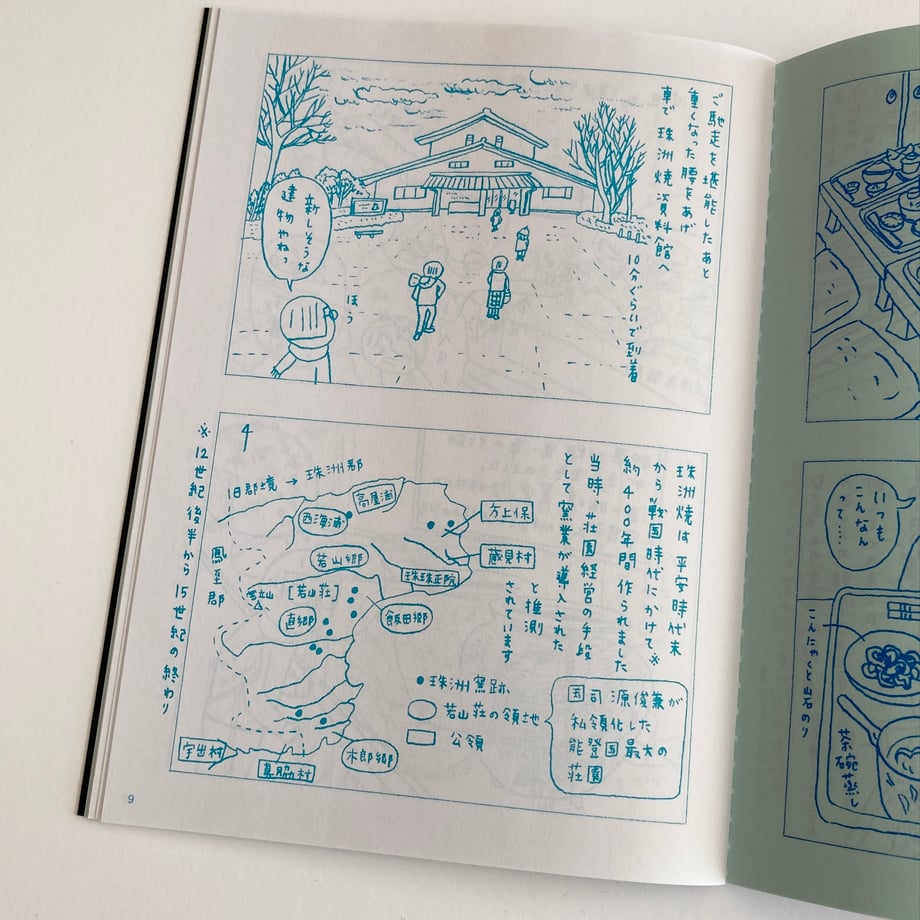 ご馳走を堪能したあと
重くなった腰をあげ
車で珠洲焼資料館へ
10分ぐらいで到着
新しそうな
建物やねっ
ほう
珠洲焼は平安時代末
から戦国時代にかけて※
約400年間作られました
当時、荘園経営の手段
として窯業が導入された
と推測
されています
※12世紀後半から15世紀の終わり
旧郡境→珠洲郡
高屋浦
西海浦
方上保
若山郷
蔵見村
珠珠正院
鳳至郡
[若山荘]
直郷
飯田郷
木郎郷
宇出村
真脇村
●珠洲窯跡
若山荘の領地
公領
国司源俊兼が
私領化した
能登国最大の
荘園
9
いつも
こんなん
って……
こんにゃくと岩のり
茶碗蒸し